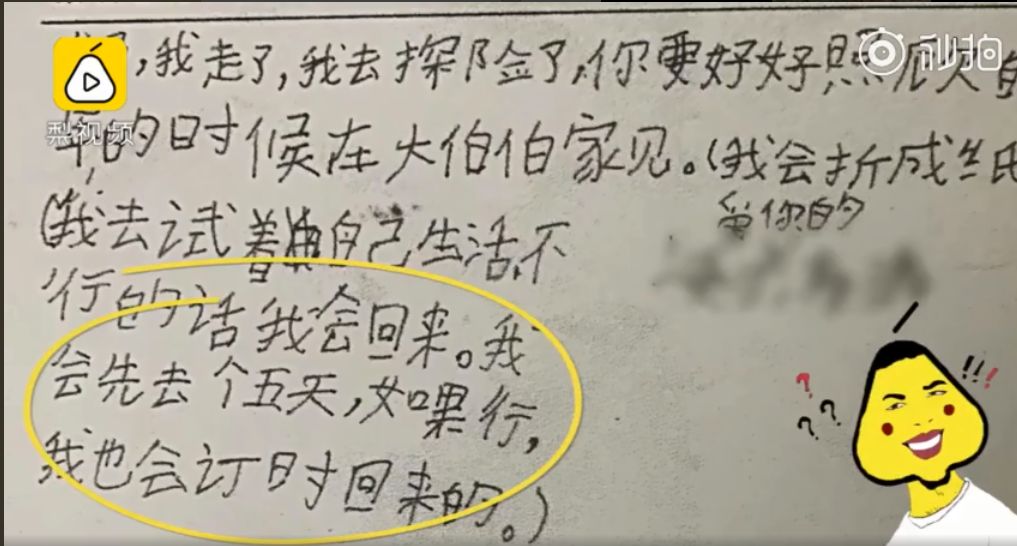 秒拍
梨视频
,我走了,我去探险了,你要好好照
的时候在大伯伯家见。(我会折成
你的
(我去试着自己生活,不
行的话我会回来。我
会先去个五天,如果行,
我也会订时回来的。)
???
!!!!